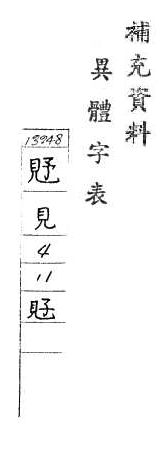 補充資料
異體字表
13948
見
4
11